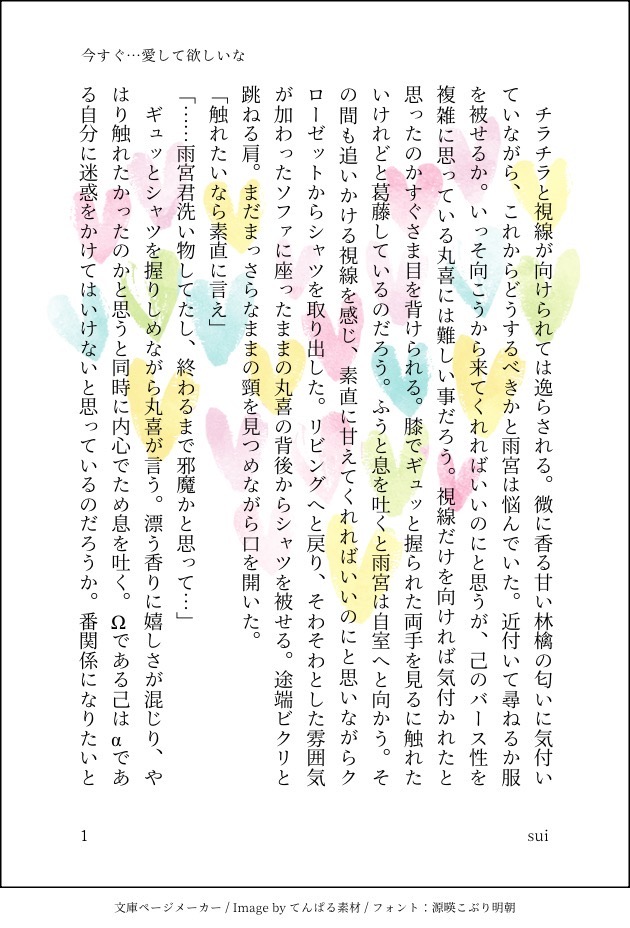 今すぐ…愛して欲しいな
　チラチラと視線が向けられては逸らされる。微に香る甘い林檎の匂いに気付い
ていながら、これからどうするべきかと雨宮は悩んでいた。近付いて尋ねるか服
を被せるか。いっそ向こうから来てくれればいいのにと思うが、己のバース性を
複雑に思っている丸喜には難しい事だろう。視線だけを向ければ気付かれたと
思ったのかすぐさま目を背けられる。膝でギュッと握られた両手を見るに触れた
いけれどと葛藤しているのだろう。ふうと息を吐くと雨宮は自室へと向かう。そ
の間も追いかける視線を感じ、素直に甘えてくれればいいのにと思いながらク
ローゼットからシャツを取り出した。リビングへと戻り、そわそわとした雰囲気
が加わったソファに座ったままの丸喜の背後からシャツを被せる。途端ビクリと
跳ねる肩。まだまっさらなままの頸を見つめながら口を開いた。
「触れたいなら素直に言え」
「……雨宮君洗い物してたし、終わるまで邪魔かと思って…」
　ギュッとシャツを握りしめながら丸喜が言う。漂う香りに嬉しさが混じり、や
はり触れたかったのかと思うと同時に内心でため息を吐く。Ωである己はαであ
る自分に迷惑をかけてはいけないと思っているのだろうか。番関係になりたいと
1
sui
文庫ページメーカー / Image by てんぱる素材 / フォント：源暎こぶり明朝